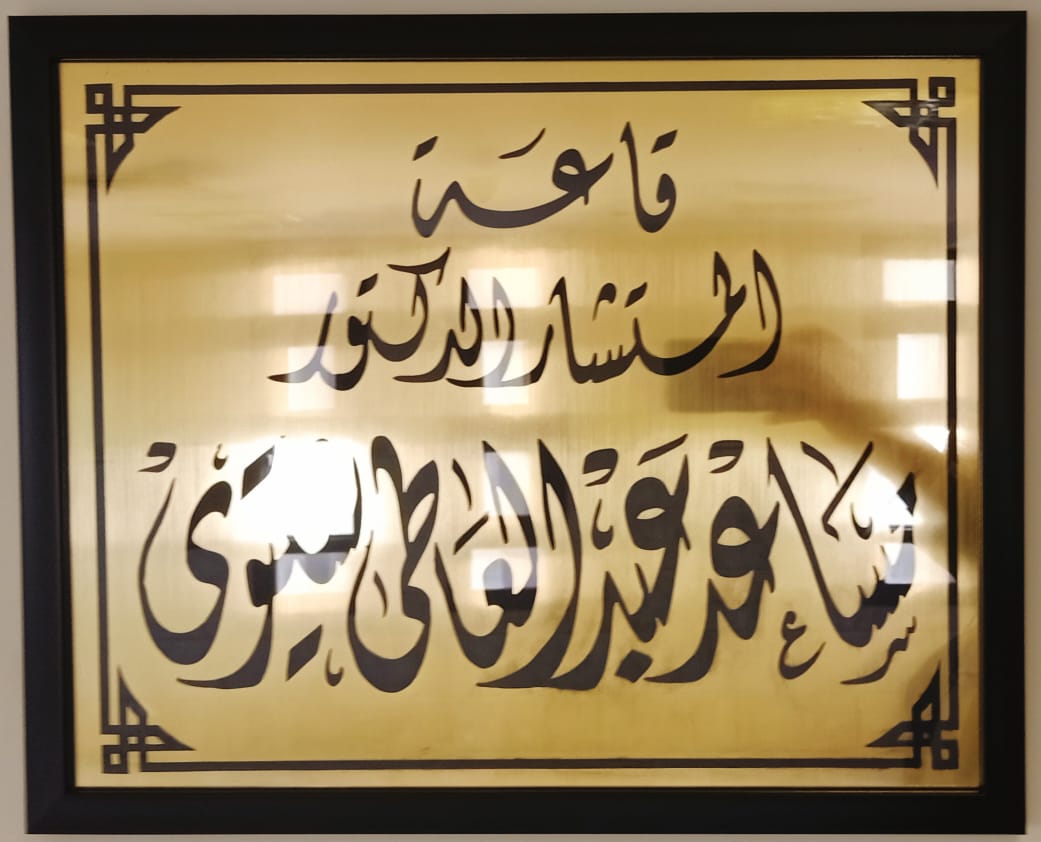 قاعة
المستشار الدكتور
مساعد عبد العاطى شتيوى